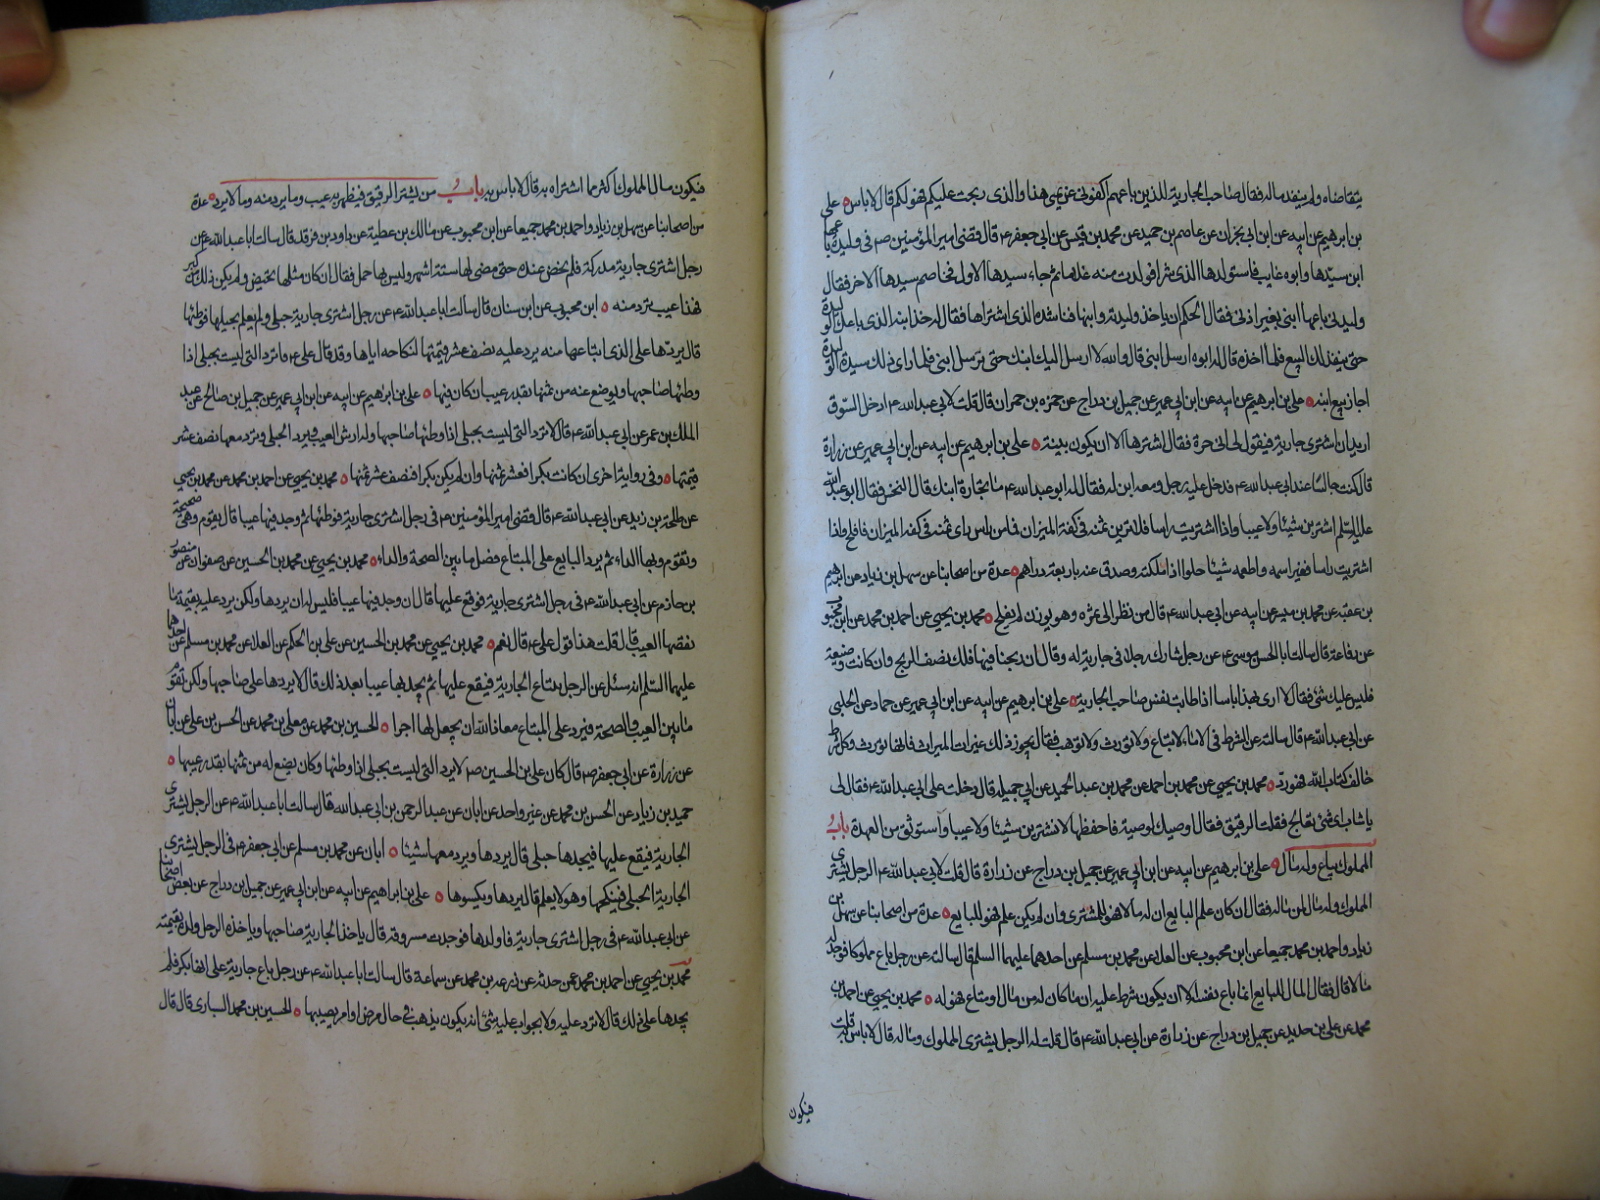 يتقاضاه ولم ينفد ماله فقال صاحب الجارية للذين باعهم اكفوني غريمي هذا والذي ربحت عليكم فهو لكم قال لا باس ه على
بن ابرهيم عن ابيه عن ابن ابي نجران عن عاصم بن حميد عن محمد بن قيس عن ابي جعفر ع قال قضى امير المؤمنين ص في وليدة باعها
ابن سيدها وابوه غايب فاستولدها الذي اشتراها فولدت منه غلاما ثم جاء سيدها الاول فخاصم سيدها الاخر فقال
وليدتي باعها ابني بغير اذني فقال الحكم ان ياخذ وليدته وابنها فناشده الذي اشتراها فقال له خذ ابنه الذي باعك الوليدة
حتى ينفذ لك البيع فلما اخذه قال له ابوه ارسل ابني قال والله لا ارسل اليك ابنك حتى ترسل ابني فلما راى ذلك سيد الوليدة
اجاز بيع ابنه ه على بن ابرهيم عن ابيه عن ابن ابي عمير عن جميل بن دراج عن حمزة بن حمران قال قلت لابي عبد الله ع ادخل السوق
اريد ان اشترى جارية فتقول لى انى حرة فقال اشترها الا ان يكون بينة ه على بن ابرهيم عن ابيه عن ابن ابى عمير عن زرارة
قال كنت جالسا عند ابي عبد الله ع فدخل عليه رجل ومعه ابن له فقال له ابو عبد الله ع ما تجارة ابنك قال النخس فقال ابو عبد الله
عليه السلم لا تشترين شيئا ولا عيبا واذا اشتريت راسا فلا ترين ثمنه في كفة الميزان فما من راس راى ثمنه في كفة الميزان فافلح فاذا
اشتريت راسا فغير اسمه واطعمه شيئا حلوا اذا ملكته وصدق عنه باربعة دراهم ه عدة من اصحابنا عن سهل بن زياد عن ابرهيم
بن عقبة عن محمد بن ميسر عن ابيه عن ابي عبد الله ع قال من نظر الى ثمنه وهو يوزن لم يفلح ه محمد بن يحيى عن احمد بن محمد عن ابن محبوب
عن رفاعة قال سالت ابا الحسن موسى ع عن رجل شارك رجلا في جارية له وقال ان ربحنا فيها فلك نصف الربح وان كانت وضيعة
فليس عليك شئ فقال لا ارى بهذا باسا اذا طابت نفس صاحب الجارية ه على بن ابرهيم عن ابيه عن ابن ابي عمير عن حماد عن الحلبي
عن ابي عبد الله ع قال سالته عن الشرط في الاماء لا تباع ولا تورث ولا توهب فقال يجوز ذلك غير الميراث فانها تورث وكل شرط
خالف كتاب الله فهو رد ه محمد بن يحيى عن محمد بن احمد عن محمد بن عبد الحميد عن ابي جميلة قال دخلت على ابي عبد الله ع فقال لى
يا شاب اى شئ تعالج فقلت الرقيق فقال اوصيك بوصية فاحفظها لا تشترين شيئا ولا عيبا واستوثق من العهدة باب
المملوك يباع وله مال ه على بن ابرهيم عن ابيه عن ابن ابي عمير عن جميل بن دراج عن زرارة قال قلت لابي عبد الله ع الرجل يشتري
المملوك وله مال لمن ماله فقال ان كان علم البايع ان له مالا فهو للمشترى وان لم يكن علم فهو للبايع ه عدة من اصحابنا عن سهل بن
زياد واحمد بن محمد جميعا عن ابن محبوب عن العلا عن محمد بن مسلم عن احدهما عليهما السلم قال سالته عن رجل باع مملوكا فوجد له
مالا قال فقال المال للبايع انما باع نفسه الا ان يكون شرط عليه ان ما كان له من مال او متاع فهو له ه محمد بن يحيى عن احمد بن
محمد عن على بن حديد عن جميل بن دراج عن زرارة عن ابي عبد الله ع قال قلت له الرجل يشترى المملوك وماله قال لا باس به قلت
فيكون
فيكون مال المملوك اكثر مما اشتراه به قال لا باس به باب من يشتري الرقيق فيظهر به عيب وما يرد منه وما لا يرد ه عدة
من اصحابنا عن سهل بن زياد واحمد بن محمد جميعا عن ابن محبوب عن مالك بن عطية عن داود بن فرقد قال سالت ابا عبد الله ع عن
رجل اشترى جارية مدركة فلم تحض عنده حتى مضى لها ستة اشهر وليس بها حمل فقال ان كان مثلها تحيض ولم يكن ذلك من كبر
فهذا عيب ترد منه ه ابن محبوب عن ابن سنان قال سالت ابا عبد الله ع عن رجل اشترى جارية حبلى ولم يعلم بحبلها فوطئها
قال يردها على الذي ابتاعها منه يرد عليه نصف عشر قيمتها لنكاحه اياها وقد قال على ع لا ترد التي ليست بحبلى اذا
وطئها صاحبها ويوضع عنه من ثمنها بقدر عيب ان كان فيها ه على بن ابرهيم عن ابيه عن ابن ابي عمير عن جميل بن صالح عن عبد
الملك بن عمر عن ابي عبد الله ع قال لا ترد التي ليست بحبلى اذا وطئها صاحبها وله ارش العيب ويرد الحبلى ويرد معها نصف عشر
قيمتها ه وفي رواية اخرى ان كانت بكرا فعشر ثمنها وان لم يكن بكرا فنصف عشر ثمنها ه محمد بن يحيى عن احمد بن محمد عن محمد بن يحيى
عن طلحة بن زيد عن ابي عبد الله ع قال قضى امير المؤمنين ع في رجل اشترى جارية فوطئها ثم وجد فيها عيبا قال يقوم وهي صحيحة
وتقوم وبها الداء ثم يرد البايع على المبتاع فضل ما بين الصحة والداء ه محمد بن يحيى عن محمد بن الحسين عن صفوان عن منصور
بن حازم عن ابي عبد الله ع في رجل اشترى جارية فوقع عليها قال ان وجد فيها عيبا فليس له ان يردها ولكن يرد عليه بقيمة ما
نقصها العيب قال قلت هذا قول على ع قال نعم ه محمد بن يحيى عن محمد بن الحسين عن على بن الحكم عن العلا عن محمد بن مسلم عن احدهما
عليهما السلم انه سئل عن الرجل يبتاع الجارية فيقع عليها ثم يجد بها عيبا بعد ذلك قال لا يردها على صاحبها ولكن تقوم
ما بين العيب والصحة فيرد على المبتاع معاذ الله ان يجعل لها اجرا ه الحسين بن محمد عن معلى بن محمد عن الحسن بن على عن ابان
عن زرارة عن ابي جعفر ع قال كان على بن الحسين ص لا يرد التي ليست بحبلى اذا وطئها وكان يضع له من ثمنها بقدر عيبها ه
حميد بن زياد عن الحسن بن محمد عن غير واحد عن ابان عن عبد الرحمن بن ابي عبد الله قال سالت ابا عبد الله ع عن الرجل يشترى
الجارية فيقع عليها فيجدها حبلى قال يردها ويرد معها شيئا ه ابان عن محمد بن مسلم عن ابي جعفر ع في الرجل يشترى
الجارية الحبلى فينكحها وهو لا يعلم قال يردها ويكسوها ه على بن ابراهيم عن ابيه عن ابن ابي عمير عن جميل بن دراج عن بعض اصحابنا
عن ابي عبد الله ع في رجل اشترى جارية فاولدها فوجدت مسروقة قال ياخذ الجارية صاحبها وياخذ الرجل ولده بقيمته
محمد بن يحيى عن احمد بن محمد عمن حدثه عن زرعة بن محمد عن سماعة قال سالت ابا عبد الله ع عن رجل باع جارية على انها بكر فلم
يجدها على ذلك قال لا ترد عليه ولا يجب عليه شئ انه يكون يذهب في حال مرض او امر يصيبها ه الحسين بن محمد السياري قال قال